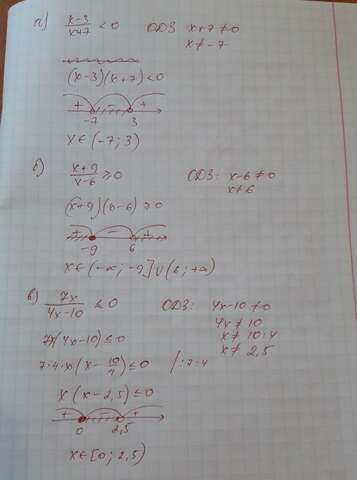 а) (x-3)/(x+7) < 0   ОДЗ x+7 ≠ 0
x ≠ -7
(x-3)(x+7) < 0
+ - +
-7 3
x∈(-7; 3)
б) (x+9)/(x-6) ≥ 0   ОДЗ: x-6 ≠ 0
x ≠ 6
(x+9)(6-6) ≥ 0
+ - +
-9 6
x∈(-∞; -9] ∪ (6; +∞)
в) 7x/(4x-10) ≤ 0   ОДЗ: 4x-10 ≠ 0
4x ≠ 10
7x(4x-10) ≤ 0   x ≠ 10:4
x ≠ 2,5
7·4·x(x - 10/4) ≤ 0   /:7·4
x(x-2,5) ≤ 0
+ - +
0 2,5
x∈[0; 2,5)